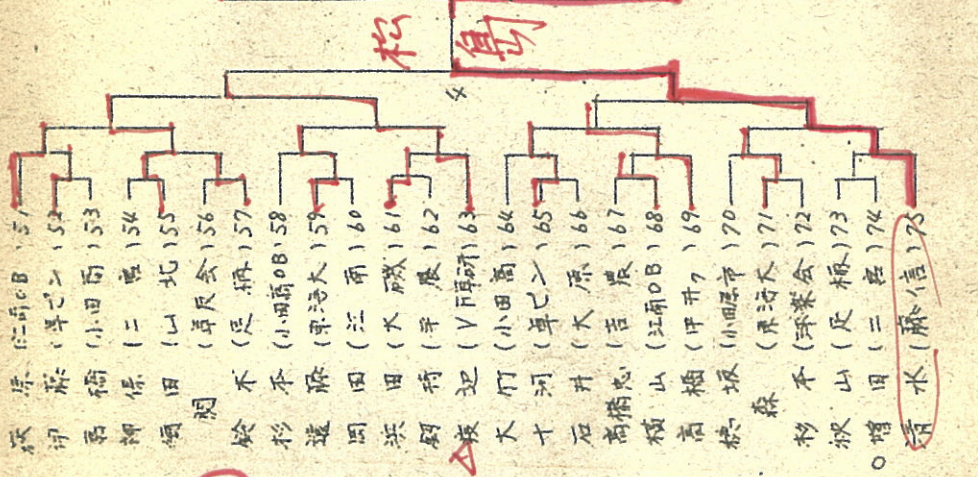 松島
4
萩原 (江南OB) 51
伊藤 (卓ピン) 52
高橋 (小田商) 53
神保 (二宮) 54
須田 (山北) 55
関 (卓友会) 56
鈴木 (足柄) 57
杉本 (小田商OB) 58
遠藤 (東海大) 59
岡田 (江南) 60
浜田 (大磯) 61
釼持 (平農) 62
渡辺 (V西研) 63
大竹 (小田高) 64
十河 (卓ピン) 65
石井 (大原) 66
高橋忠 (吉農) 67
横山 (江南OB) 68
高橋 (中井ク) 69
穂坂 (小田原市) 70
森 (東海大) 71
杉本 (球楽会) 72
秋山 (足柄) 73
○ 増田 (二宮) 74
清水 (藤信) 75